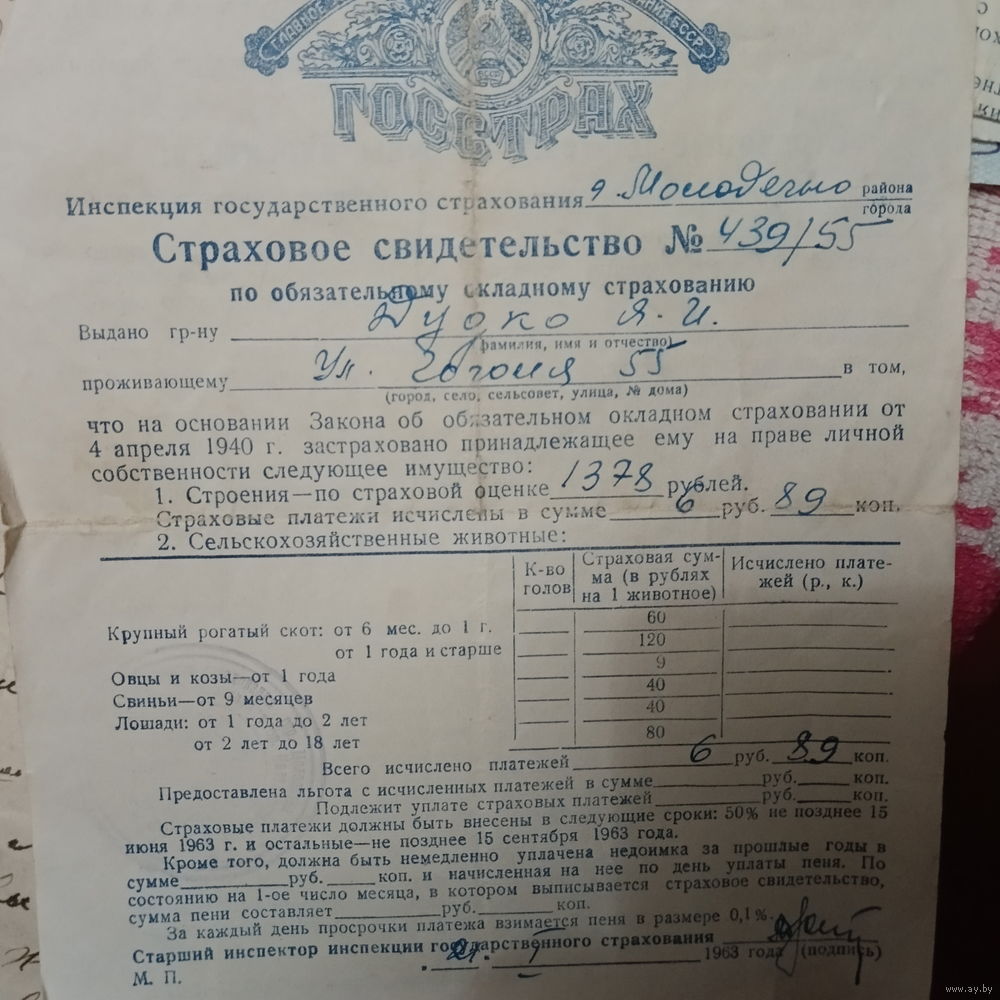 ГЛАВНОЕ
АНИЯ БССР
БССР
ГОССТРАХ
Инспекция государственного страхования г. Молодечно района
города
Страховое свидетельство № 439/55
по обязательному окладному страхованию
Выдано гр-ну Я. И.
(фамилия, имя и отчество)
проживающему Ул. Гоголя 55 в том,
(город, село, сельсовет, улица, № дома)
что на основании Закона об обязательном окладном страховании от
4 апреля 1940 г. застраховано принадлежащее ему на праве личной
собственности следующее имущество:
1. Строения—по страховой оценке 1378 рублей.
Страховые платежи исчислены в сумме 6 руб. 89 коп.
2. Сельскохозяйственные животные:
К-во голов Страховая сум-ма (в рублях на 1 животное) Исчислено плате-жей (р., к.)
Крупный рогатый скот: от 6 мес. до 1 г. 60
от 1 года и старше 120
Овцы и козы—от 1 года 9
Свиньи—от 9 месяцев 40
Лошади: от 1 года до 2 лет 40
от 2 лет до 18 лет 80
Всего исчислено платежей 6 руб. 89 коп.
Предоставлена льгота с исчисленных платежей в сумме руб. коп.
Подлежит уплате страховых платежей руб. коп.
Страховые платежи должны быть внесены в следующие сроки: 50% не позднее 15
июня 1963 г. и остальные—не позднее 15 сентября 1963 года.
Кроме того, должна быть немедленно уплачена недоимка за прошлые годы в
сумме руб. коп. и начисленная на нее по день уплаты пеня. По
состоянию на 1-ое число месяца, в котором выписывается страховое свидетельство,
сумма пени составляет руб. коп.
За каждый день просрочки платежа взимается пеня в размере 0,1%.
Старший инспектор инспекции государственного страхования
1963 года (подпись)
М. П.
www.ay.by